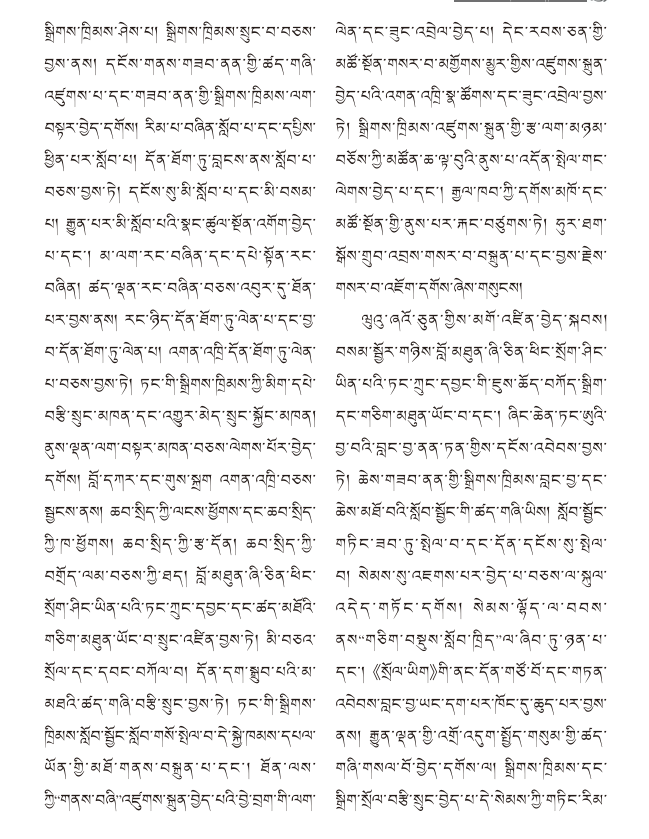 སྒྲིགས་ཁྲིམས་ཤེས་པ། སྒྲིགས་ཁྲིམས་སྲུང་བ་བཅས་
བྱས་ནས། དངོས་གནས་གཟབ་ནན་གྱི་ཚད་གཞི་
འཛུགས་པ་དང་གཟབ་ནན་གྱི་སྒྲིགས་ཁྲིམས་ལག་
བསྟར་བྱེད་དགོས། རིམ་པ་བཞིན་སློབ་པ་དང་དཔྱིས་
ཕྱིན་པར་སློབ་པ། དོན་ཐོག་ཏུ་བླངས་ནས་སློབ་པ་
བཅས་བྱས་ཏེ། དངོས་སུ་མི་སློབ་པ་དང་མི་བསམ་
པ། རྒྱུན་པར་མི་སློབ་པའི་སྣང་ཚུལ་སྔོན་འགོག་བྱེད་
པ་དང་། མ་ལག་རང་བཞིན་དང་དཔེ་སྟོན་རང་
བཞིན། ཚད་ལྡན་རང་བཞིན་བཅས་འབུར་དུ་ཐོན་
པར་བྱས་ནས། རང་ཉིད་དོན་ཐོག་ཏུ་ལེན་པ་དང་བྱ་
བ་དོན་ཐོག་ཏུ་ལེན་པ། འགན་འཁྲི་དོན་ཐོག་ཏུ་ལེན་
པ་བཅས་བྱས་ཏེ། ཏང་གི་སྒྲིགས་ཁྲིམས་ཀྱི་མིག་དཔེ་
བརྩི་སྲུང་མཁན་དང་འགྱུར་མེད་སྲུང་སྐྱོང་མཁན།
ནུས་ལྡན་ལག་བསྟར་མཁན་བཅས་ལེགས་པོར་བྱེད་
དགོས། བློ་དཀར་དང་གུས་སྐྲག འགན་འཁྲི་བཅས་
སྦྱངས་ནས། ཆབ་སྲིད་ཀྱི་ལངས་ཕྱོགས་དང་ཆབ་སྲིད་
ཀྱི་ཁ་ཕྱོགས། ཆབ་སྲིད་ཀྱི་རྩ་དོན། ཆབ་སྲིད་ཀྱི་
བགྲོད་ལམ་བཅས་ཀྱི་ཐད། བློ་མཐུན་ཞི་ཅིན་ཕིང་
སྲོག་ཤིང་ཡིན་པའི་ཏང་ཀྲུང་དབྱང་དང་ཚད་མཐོའི་
གཅིག་མཐུན་ཡོང་བ་སྲུང་འཛིན་བྱས་ཏེ། མི་བཅའ་
སྲོལ་དང་དབང་བཀོལ་བ། དོན་དག་སྒྲུབ་པའི་མ་
མཐའི་ཚད་གཞི་བརྩི་སྲུང་བྱས་ཏེ། ཏང་གི་སྒྲིགས་
ཁྲིམས་སློབ་སྦྱོང་སློབ་གསོ་སྤེལ་བ་དེ་སྐྱེ་ཁམས་དཔལ་
ཡོན་གྱི་མཐོ་གནས་བསྐྲུན་པ་དང་། ཐོན་ལས་
ཀྱི“གནས་བཞི”འཛུགས་སྐྲུན་བྱེད་པའི་བྱེ་བྲག་གི་ལག་
ལེན་དང་ཟུང་འབྲེལ་བྱེད་པ། དེང་རབས་ཅན་གྱི་
མཚོ་སྔོན་གསར་བ་མགྱོགས་མྱུར་གྱིས་འཛུགས་སྐྲུན་
བྱེད་པའི་འགན་འཁྲི་སྣ་ཚོགས་དང་ཟུང་འབྲེལ་བྱས་
ཏེ། སྒྲིགས་ཁྲིམས་འཛུགས་སྐྲུན་གྱི་རྩ་ལག་མཉམ་
བཅོས་ཀྱི་མཚོན་ཆ་ལྟ་བུའི་ནུས་པ་འདོན་སྤེལ་གང་
ལེགས་བྱེད་པ་དང་། རྒྱལ་ཁབ་ཀྱི་དགོས་མཁོ་དང་
མཚོ་སྔོན་གྱི་ནུས་པར་རྐང་བཙུགས་ཏེ། ཧུར་ཐག་
སྒོས་གྲུབ་འབྲས་གསར་བ་བསྐྲུན་པ་དང་བྱས་རྗེས་
གསར་བ་འཇོག་དགོས་ཞེས་གསུངས།
ཝུའུ་ཞའོ་ཅུན་གྱིས་མགོ་འཛིན་བྱེད་སྐབས།
བསམ་སྦྱོར་གཉིས་བློ་མཐུན་ཞི་ཅིན་ཕིང་སྲོག་ཤིང་
ཡིན་པའི་ཏང་ཀྲུང་དབྱང་གི་ཇུས་ཆོད་བཀོད་སྒྲིག་
དང་གཅིག་མཐུན་ཡོང་བ་དང་། ཞིང་ཆེན་ཏང་ཨུའི་
བྱ་བའི་བླང་བྱ་ནན་ཏན་གྱིས་དངོས་འབེབས་བྱས་
ཏེ། ཆེས་གཟབ་ནན་གྱི་སྒྲིགས་ཁྲིམས་བླང་བྱ་དང་
ཆེས་མཐོ་བའི་སློབ་སྦྱོང་གི་ཚད་གཞི་ཡིས། སློབ་སྦྱོང་
གཏིང་ཟབ་ཏུ་སྤེལ་བ་དང་དོན་དངོས་སུ་སྤེལ་
བ། སེམས་སུ་འཇགས་པར་བྱེད་པ་བཅས་ལ་སྐུལ་
འདེད་གཏོང་དགོས། སེམས་ལྷོད་ལ་བབས་
ནས“གཅིག་བསྡུས་སློབ་ཁྲིད”ལ་ཞིབ་ཏུ་ཉན་པ་
དང་། 《སྲོལ་ཡིག》གི་ནང་དོན་གཙོ་བོ་དང་གཏན་
འབེབས་བླང་བྱ་ཡང་དག་པར་ཁོང་དུ་ཆུད་པར་བྱས་
ནས། རྒྱུན་ལྡན་གྱི་འགྲོ་འདུག་སྤྱོད་གསུམ་གྱི་ཚད་
གཞི་གསལ་པོ་བྱེད་དགོས་ལ། སྒྲིགས་ཁྲིམས་དང་
སྒྲིག་སྲོལ་བརྩི་སྲུང་བྱེད་པ་དེ་སེམས་ཀྱི་གཏིང་རིམ་